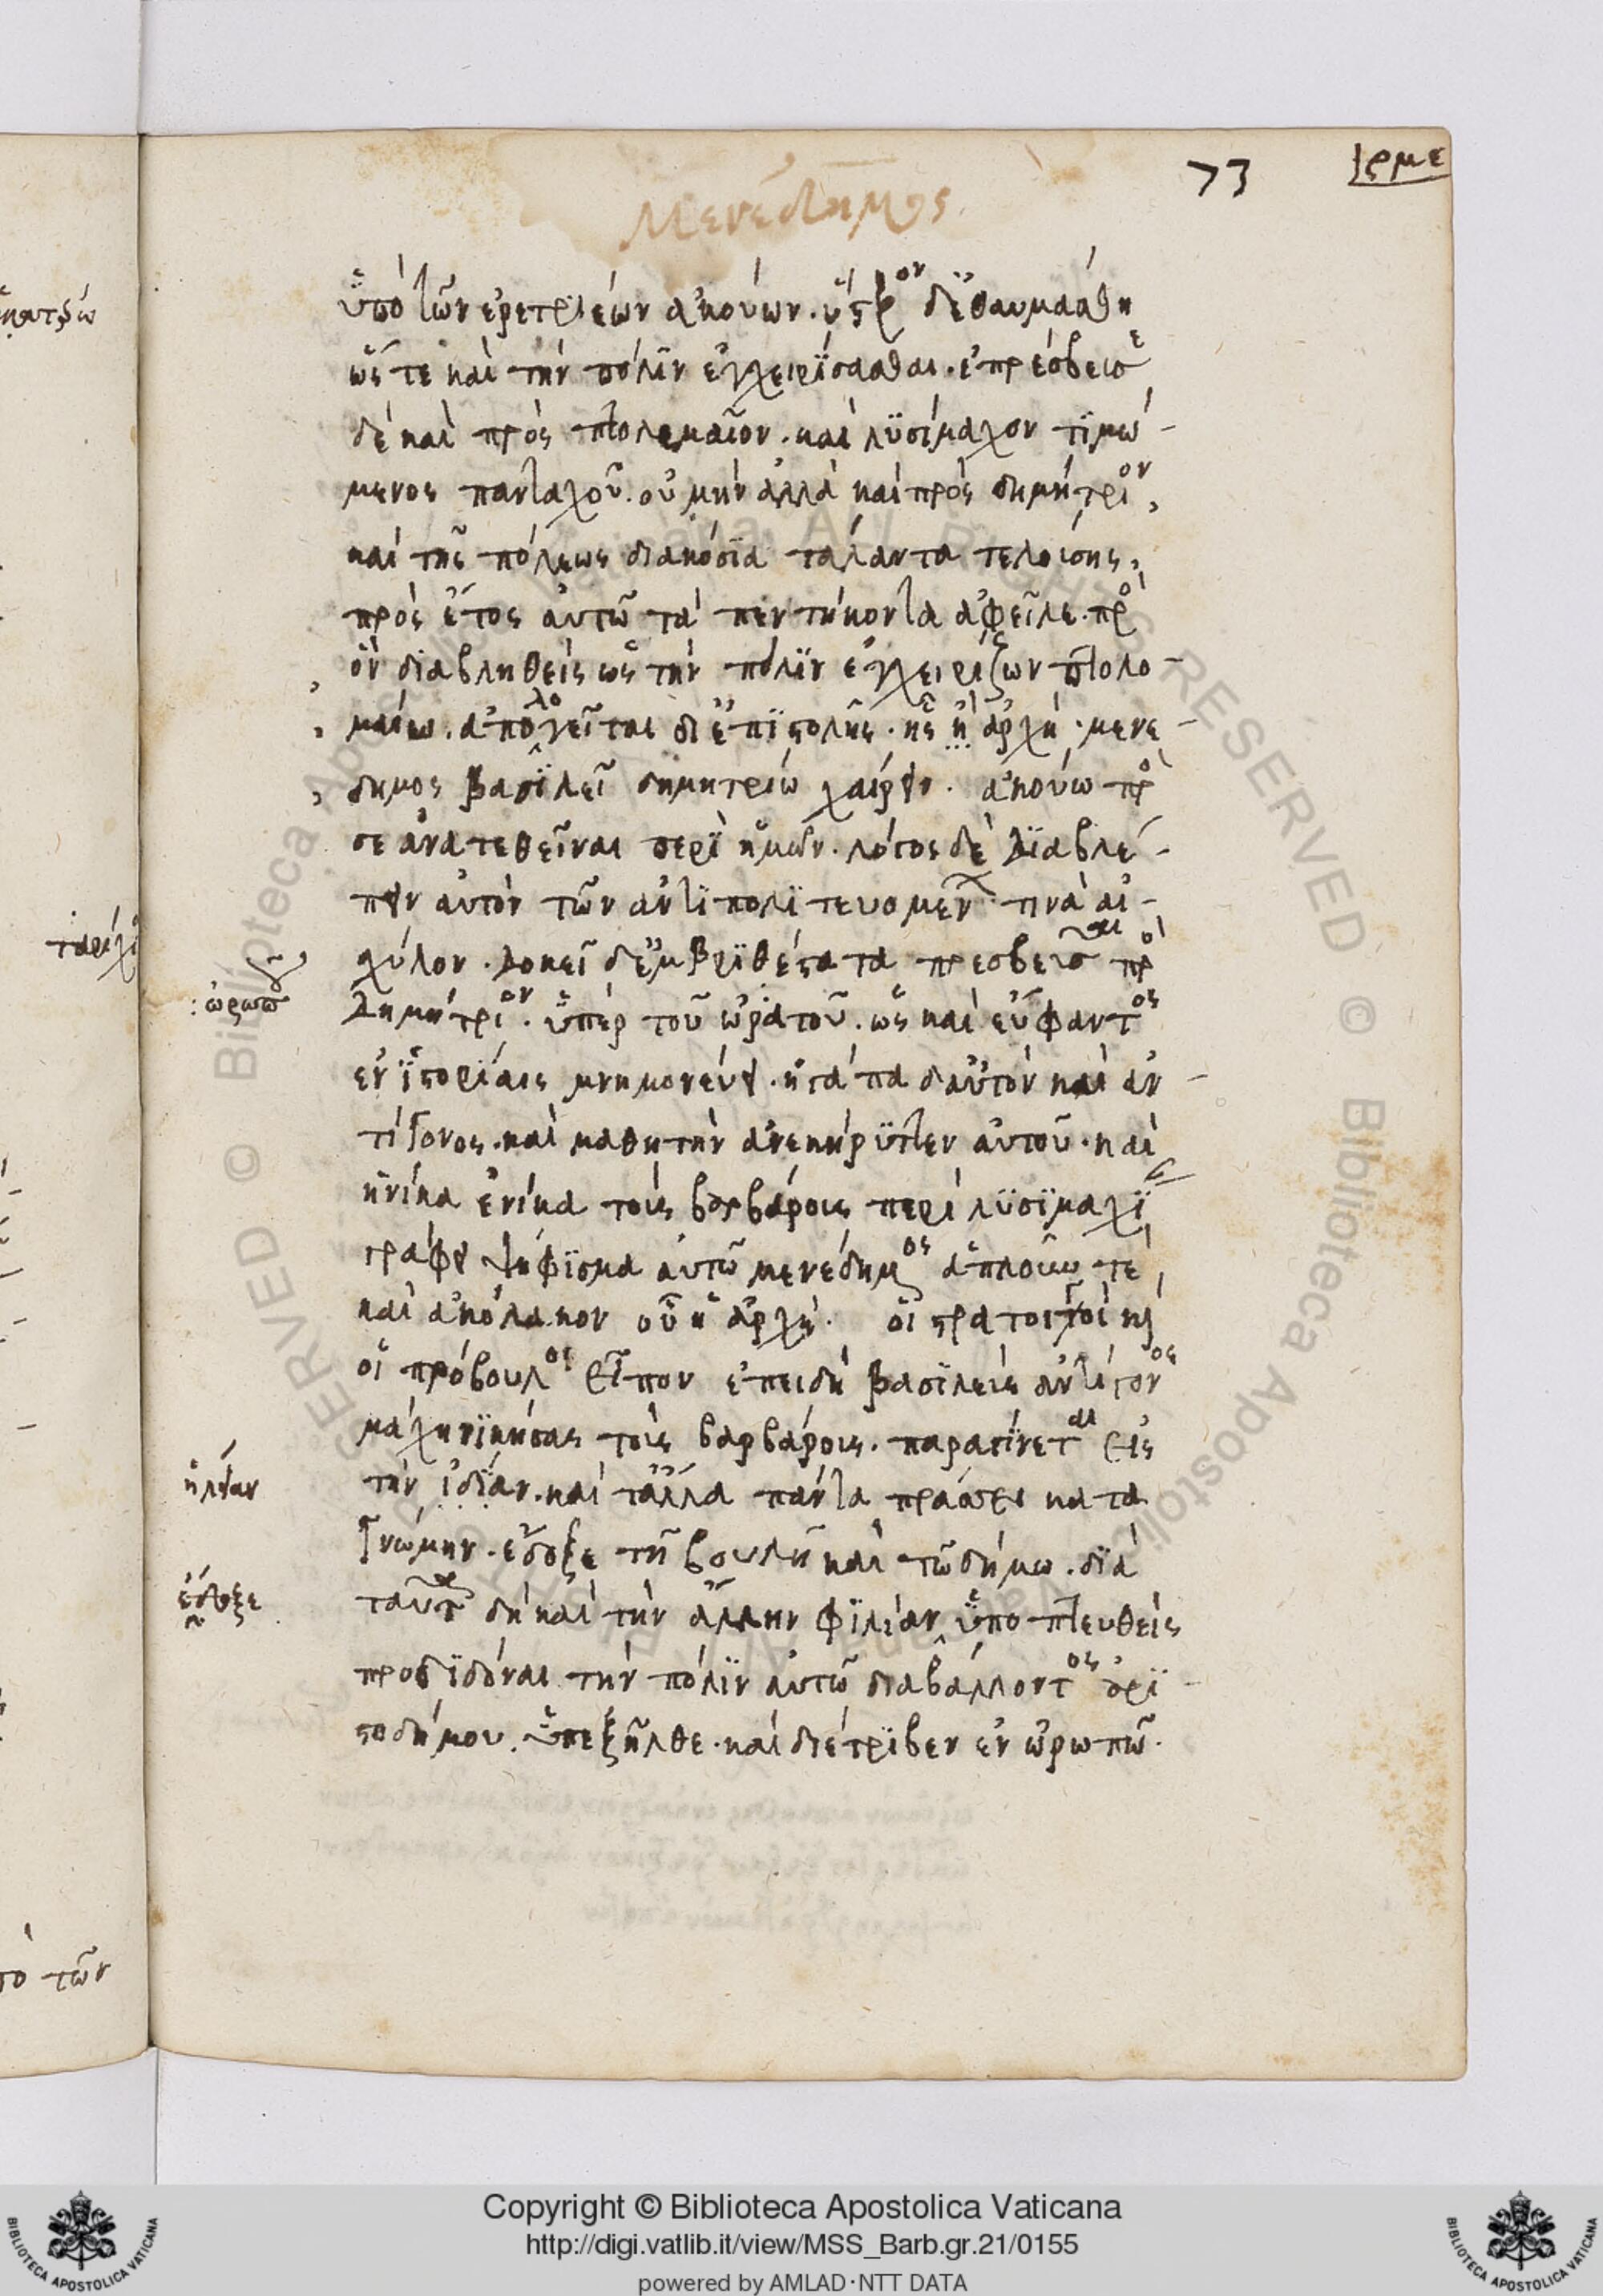 73
ρμε
Μενέδημος
ὑπὸ τῶν ἐρετριέων ἀκούων. ὕστερον δ' ἐθαυμάσθη
ὥς τε καὶ τὴν πόλιν ἐγχειρίσασθαι. ἐπρέσβευσε
δὲ καὶ πρὸς πτολεμαῖον. καὶ λϋσίμαχον τϊμώ-
μενος πανταχοῦ. οὐ μὴν ἀλλὰ καὶ πρὸς δημήτριον,
καὶ τῆς πόλεως διακόσϊα τάλαντα τελούσης,
πρὸς ἔτος αὐτῶ τὰ πεντήκοντα ἀφεῖλε. πρὸς
ὃν διαβληθεὶς ὡς τὴν πόλϊν ἐγχειρίζων πτολο-
μαίω. ἀπολογεῖται δι' ἐπϊστολῆς. ἧς ἡ ἀρχή. μενέ-
δημος βασϊλεῖ δημητρίω χαίρειν. ἀκούω πρὸς
σὲ ἀνατεθεῖναι περὶ ἡμῶν. λόγος δὲ Δϊαβλέ-
πειν αὐτὸν τῶν ἀντϊπολϊτευομένων τινὰ αἰ-
χύλον. Δοκεῖ δ' ἐμβρϊθέστατα πρεσβεῦσαι πρὸς
Δημήτριον. ὑπὲρ τοῦ ὠρατοῦ. ὡς καὶ εὔφαντος
:ὠρωποῦ
ἐν ἱστορίαις μνημονεύει. ἠγάπα δ' αὐτὸν καὶ ἀν-
τίγονος. καὶ μαθητὴν ἀνεκήρϋττεν αὐτοῦ. καὶ
ἡνίκα ἐνίκα τοὺς βαρβάρους περὶ λϋσϊμαχϊ
γράφει ψήφϊσμα αὐτῶ μενέδημος ἁπλοῦν τε
καὶ ἀκόλακον οὗ ἡ ἀρχή. οἱ στρατοιγοὶ καὶ
οἱ πρόβουλος εἶπον ἐπειδὴ βασϊλεὺς ἀντίγονος
μάχη νϊκήσας τοὺς βαρβάρους. παραγίνεται εἰς
τὴν ἰδίαν. καὶ τἄλλα πάντα πράσσει κατὰ
γνώμην. ἔδοξε τῆ βουλῆ καὶ τῶ δήμω. δϊὰ
ἔδοξε
ταῦτα δὴ καὶ τὴν ἄλλην φϊλίαν ὑποπτευθεὶς
προδϊδόναι τὴν πόλϊν αὐτῶ διαβάλλοντος ἀρϊ-
στοδήμου. ὑπεξῆλθε. καὶ διέτρϊβεν ἐν ὠρωπῶ.
πὸ τῶν
Copyright © Biblioteca Apostolica Vaticana
http://digi.vatlib.it/view/MSS_Barb.gr.21/0155
powered by AMLAD·NTT DATA
BIBLIOTECA APOSTOLICA VATICANA
BIBLIOTECA APOSTOLICA VATICANA